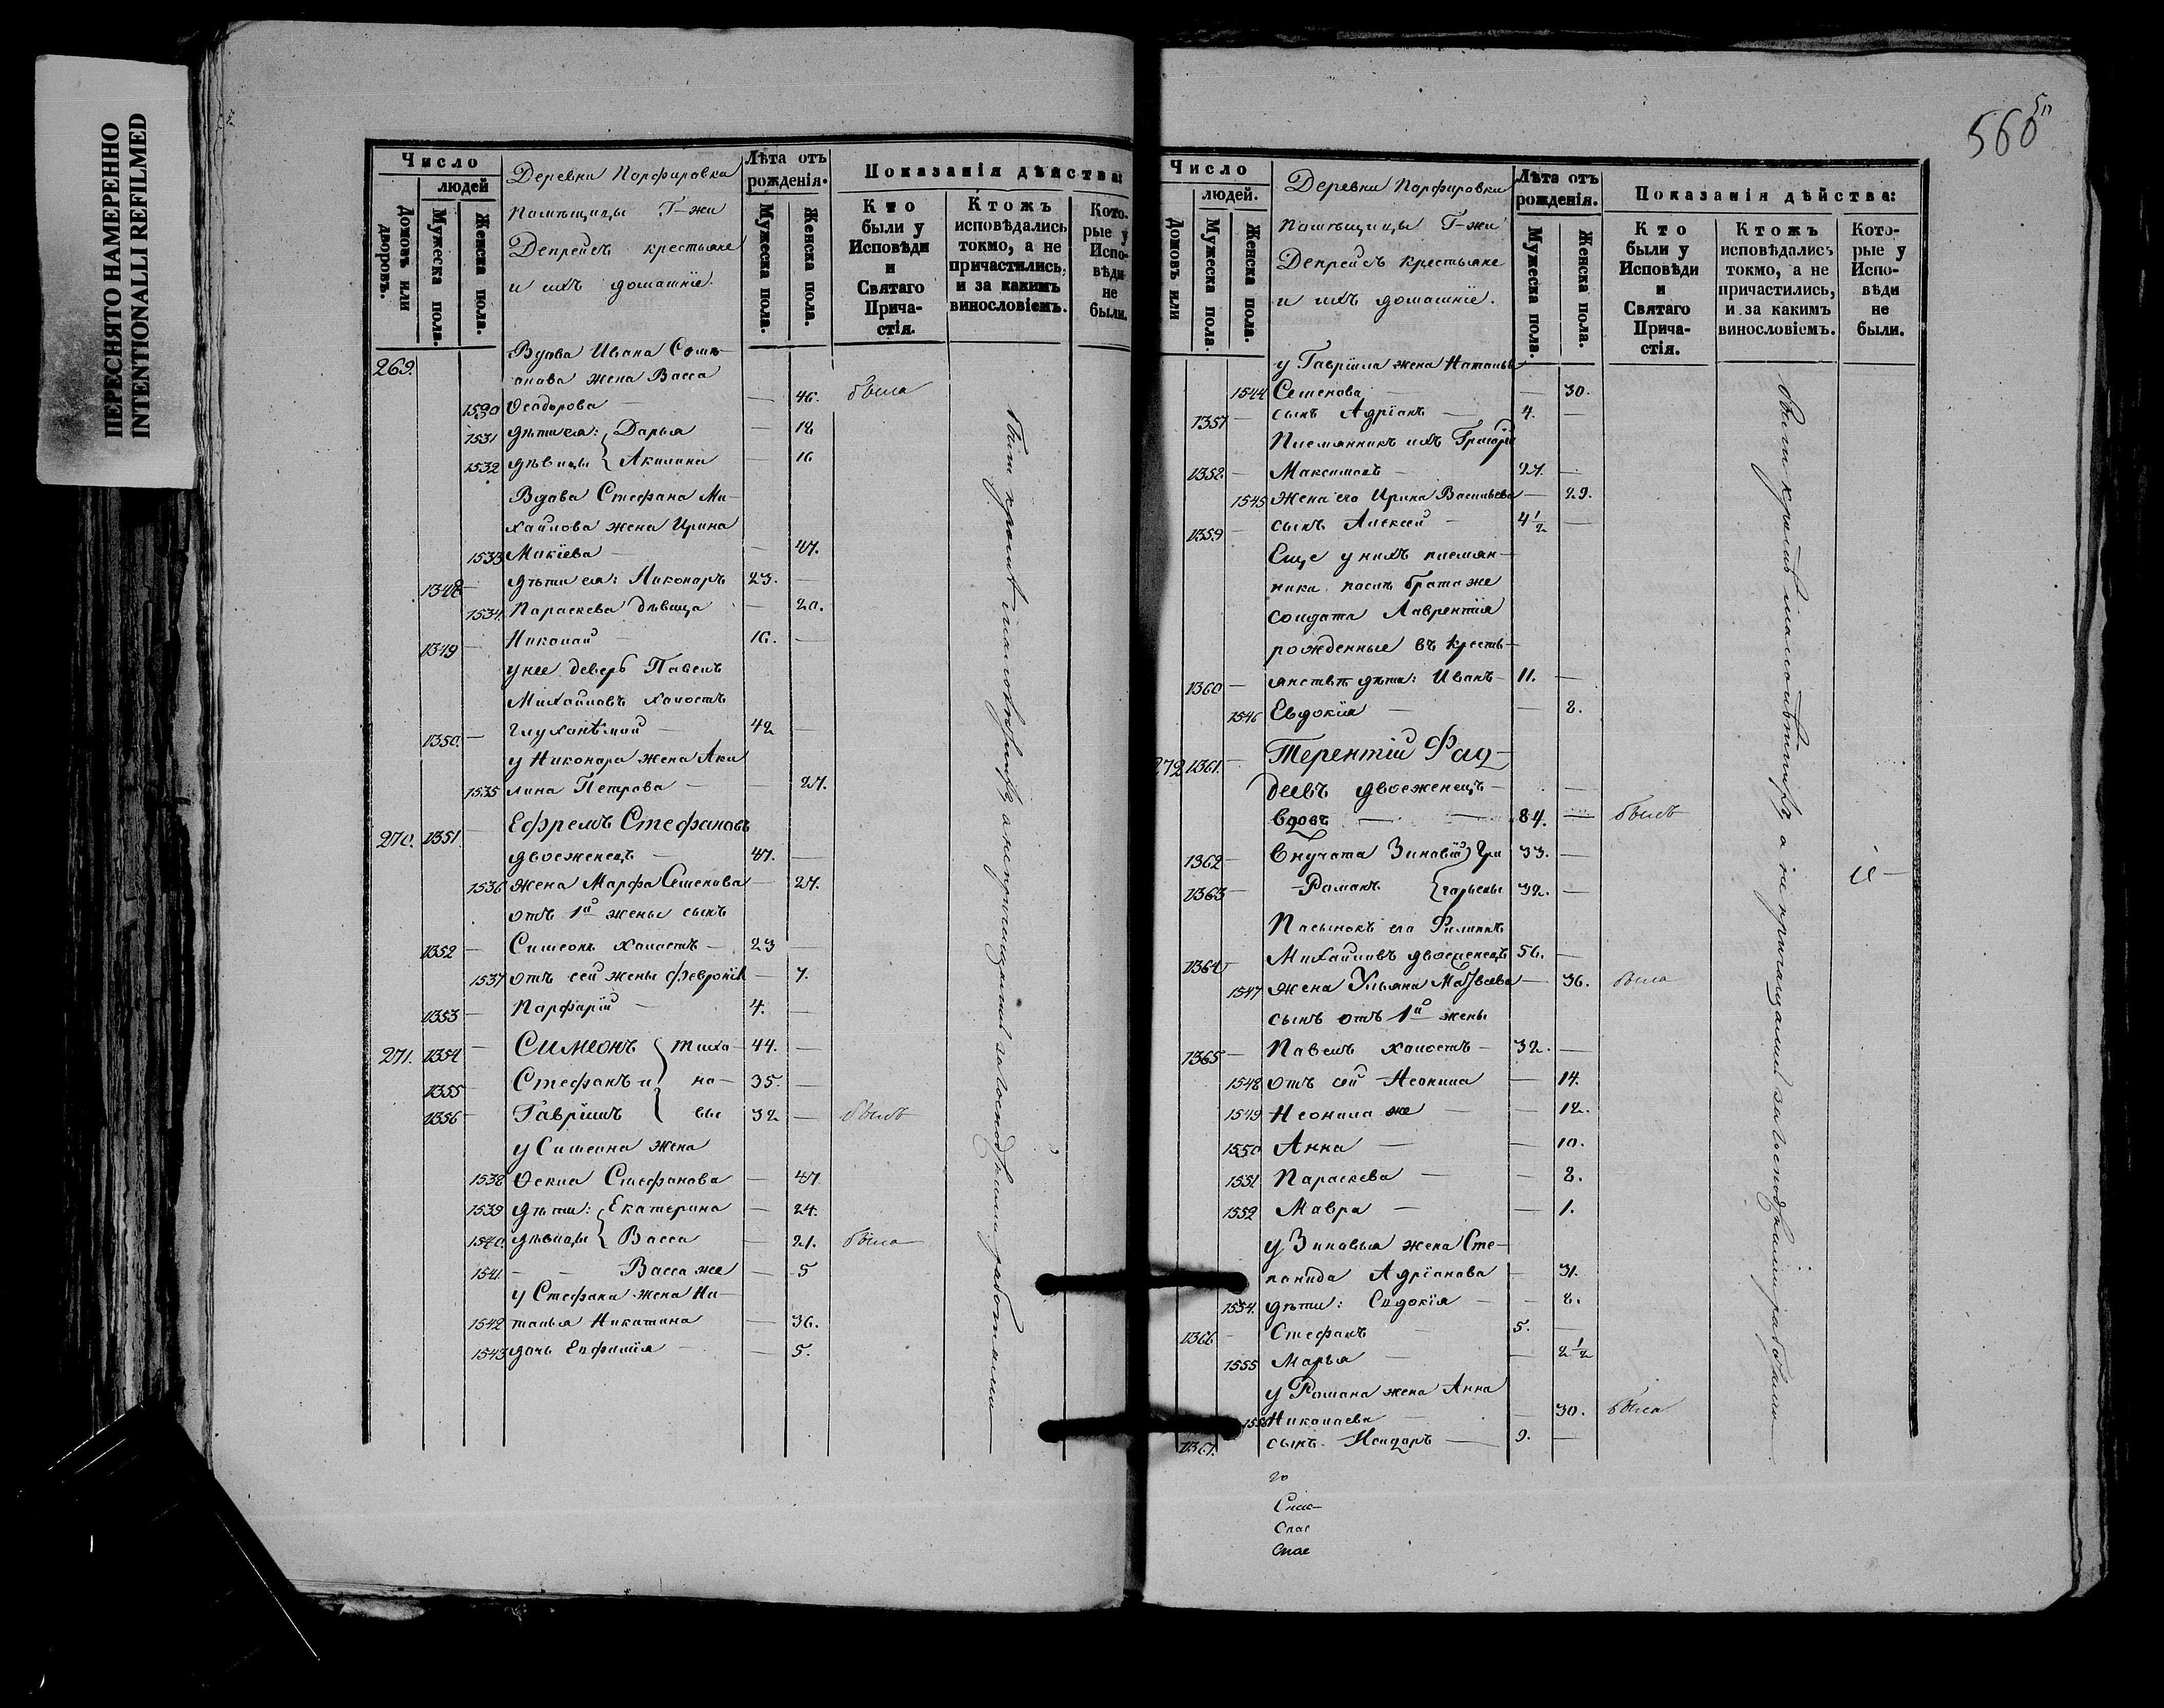 ПЕРЕСНЯТО НАМЕРЕННО
INTENTIONALLI REFILMED
Число
людей
Домовъ или дворовъ.
Мужеска пола.
Женска пола.
Деревни Парфировки
Помѣщицы Г-жи
Депрейсъ крестьяне
и ихъ домашніе.
Лѣта отъ рожденія.
Мужеска пола.
Женска пола.
Показанія дѣйства:
Кто были у Исповѣди и Святаго Прича-стія.
Ктожъ исповѣдались токмо, а не причастились, и за какимъ винословіемъ.
Кото-рые у Испо-вѣди не были.
269. Вдова Ивана
анова жена Васса
1530 Ѳеодорова — — 46. была
1531 дѣти ея: Дарья — 18
1532 дѣвицы Акилина — 16
Вдова Стефана Ми-
хайлова жена Ирина
1533 Мокіева — — 47.
1348 — дѣти ея: Никаноръ 23. —
1534. Параскева дѣвица — 20.
1349 — Николай — 16. —
у нее деверь Павелъ
Михайловъ холостъ
1350. — глухонѣмой — 42 —
у Никанора жена Аки
1535 лина Петрова — — 27.
270. 1351. Ефремъ Стефановъ
двоеженецъ — 47. —
1536 жена Марфа Семенова — 27.
отъ 1й жены сынъ
1352 — Симеонъ холостъ — 23 —
1537 отъ сей жены Февронія — 7.
1353 — Парфирій — 4. —
271. 1354 — Симеонъ Тихо— 44. —
1355 — Стефанъ и но— 35. —
1356 — Гавріилъ вы 32 — былъ
у Симеона жена
1538 Ѳекла Стефанова — 47
1539 дѣти: Екатерина — 24.
1540. дѣвицы Васса — 21. была
1541. — — Васса же — 5
у Стефана жена На—
1542 талья Никитина — 36.
1543 дочь Евфимія — — 5.
560
Число
людей.
Домовъ или
Мужеска пола.
Женска пола.
Деревни Парфировки
Помѣщицы Г-жи
Депрейсъ крестьяне
и ихъ домашніе.
Лѣта отъ рожденія.
Мужеска пола.
Женска пола.
Показанія дѣйства:
Кто были у Исповѣди и Святаго Прича-стія.
Ктожъ исповѣдались токмо, а не причастились, и за какимъ винословіемъ.
Кото-рые у Испо-вѣди не были.
у Гавріила жена Наталья
1544 Семенова — — 30.
1357 — сынъ Адріанъ — 4. —
Племянникъ ихъ Григорій
1358. — Максимовъ — 27. —
1545 жена его Ирина Васильева — 29.
1359 — сынъ Алексѣй — 4 1/2 —
Еще у нихъ племян-
ники послѣ брата же
солдата Лаврентія
рожденные въ кресть-
1360 — янствѣ дѣти: Иванъ — 11. —
1546 Евдокія — — 8.
272 1361. — Терентій Фад-
деевъ двоеженецъ —
вдовъ — — 84. — былъ
1362 — Внучата Зиновій Гри 33. —
1363 — Романъ горьевы 32. —
Пасынокъ его Филиппъ
1364 — Михайловъ двоеженецъ 56. —
1547 жена Ульяна Матвѣева — 36. была
сынъ отъ 1й жены
1365 — Павелъ холостъ — 32. —
1548 отъ сей Неонила — 14.
1549 Неонила же — — 12.
1550 Анна — — 10.
1551 Параскева — — 8.
1552 Мавра — — 1.
у Зиновья жена Сте-
панида Адріанова — 31.
1554. дѣти: Евдокія — — 8.
1366 — Стефанъ — 5. —
1555 Марья — — 2 1/2
у Романа жена Анна
1556 Николаева — — 30. была
1367. сынъ — 9. —
Спас
Спас